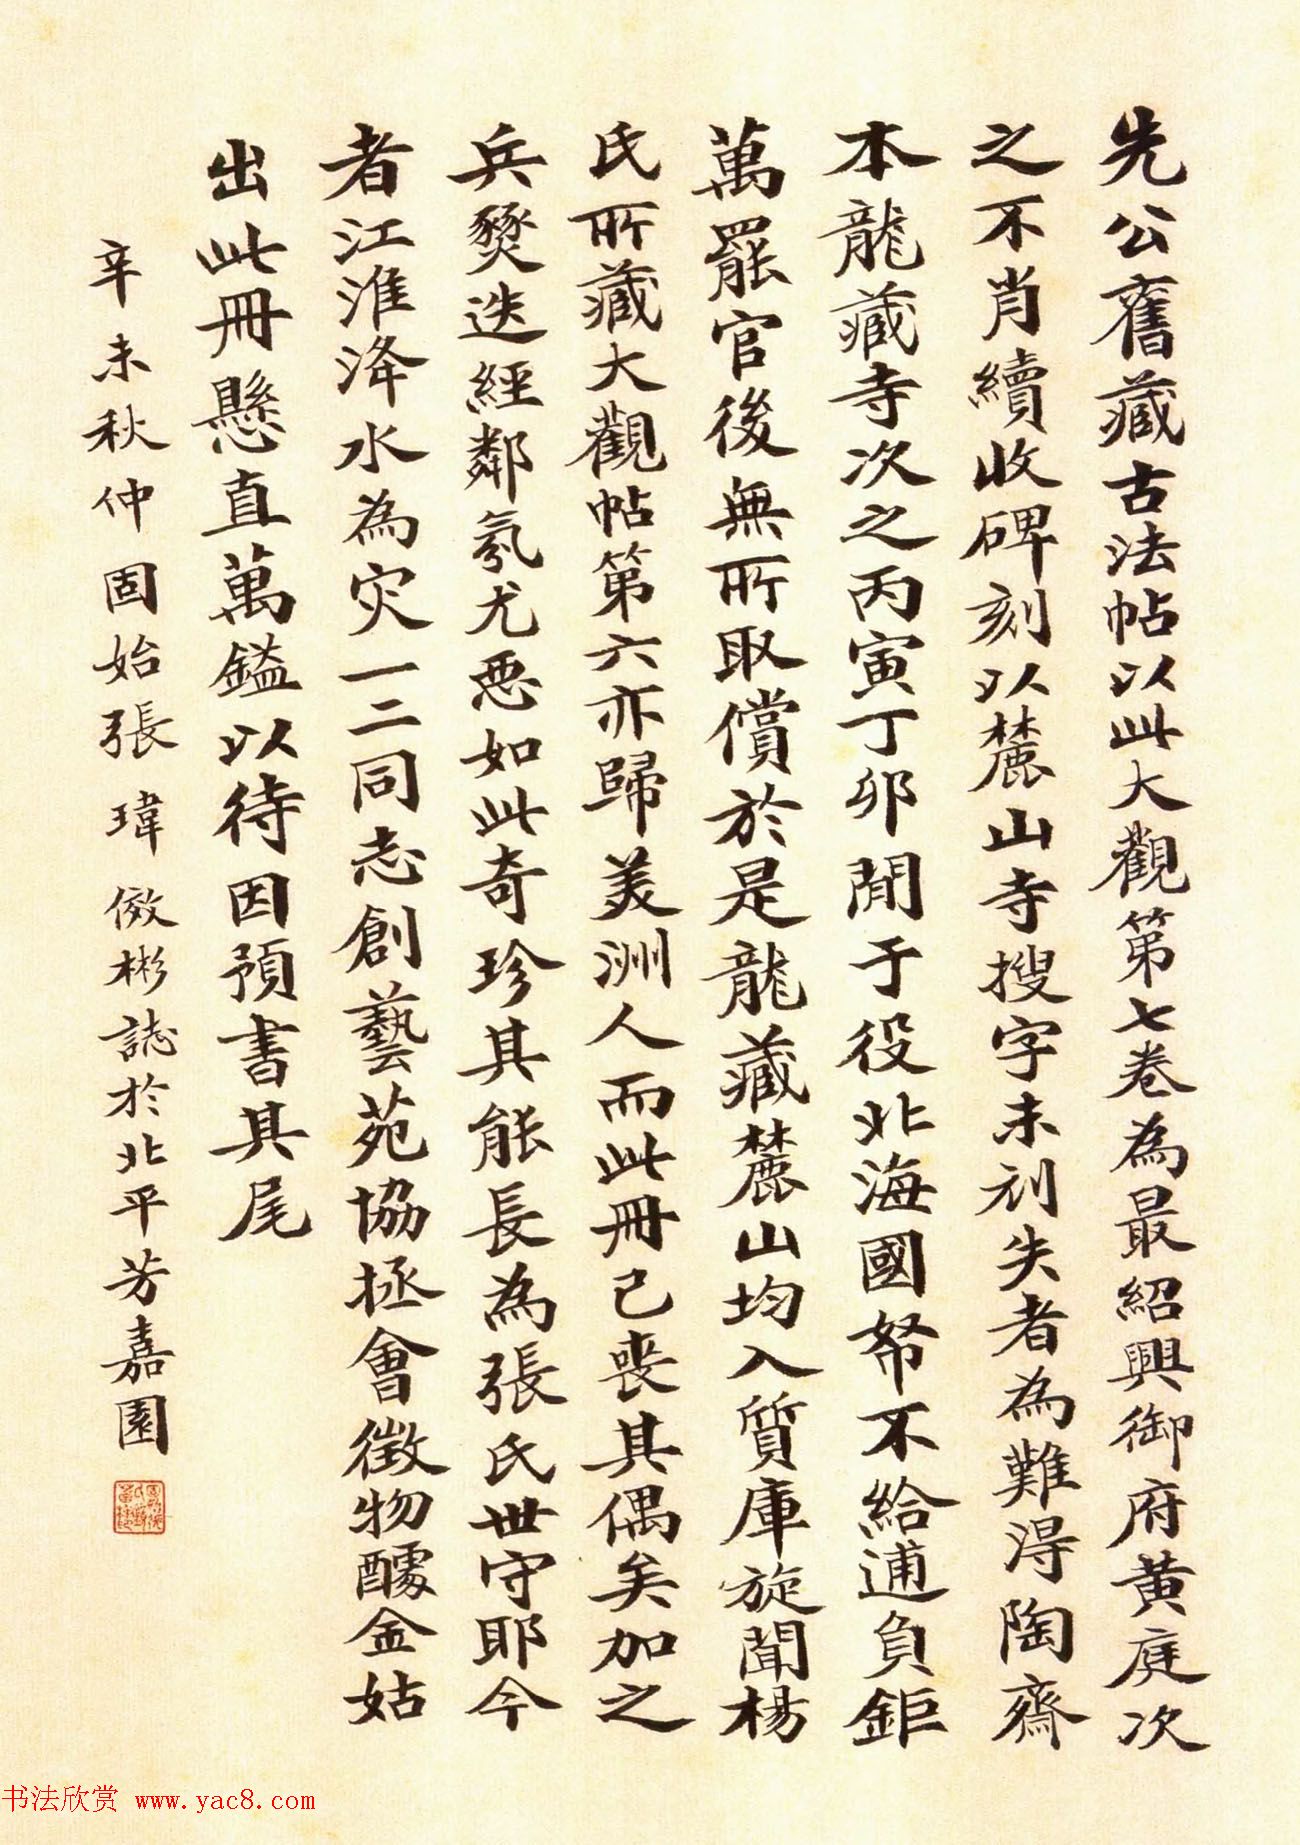 先公舊藏古法帖以此大觀第七卷為最紹興御府黃庭次
之不肖續收碑刻以麓山寺搜字未刓失者為難得陶齋
本龍藏寺次之丙寅丁卯間于役北海國帑不給逋負鉅
萬罷官後無所取償於是龍藏麓山均入質庫旋聞楊
氏所藏大觀帖第六亦歸美洲人而此冊已喪其偶矣加之
兵燹迭經鄰氛尤惡如此奇珍其能長為張氏世守耶今
者江淮洚水為灾一二同志創藝苑協拯會徵物醵金姑
出此冊懸直萬鎰以待因預書其尾
辛未秋仲固始張瑋傚彬誌於北平芳嘉園
书法欣赏 www.yac8.com